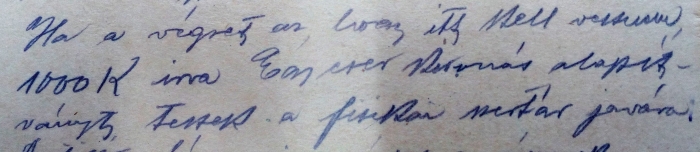 Ha a végzet az, hogy itt kell vesznem,
1000 K írva Egyezer koronás alapít-
ványt teszek a fizikai szertár javára.